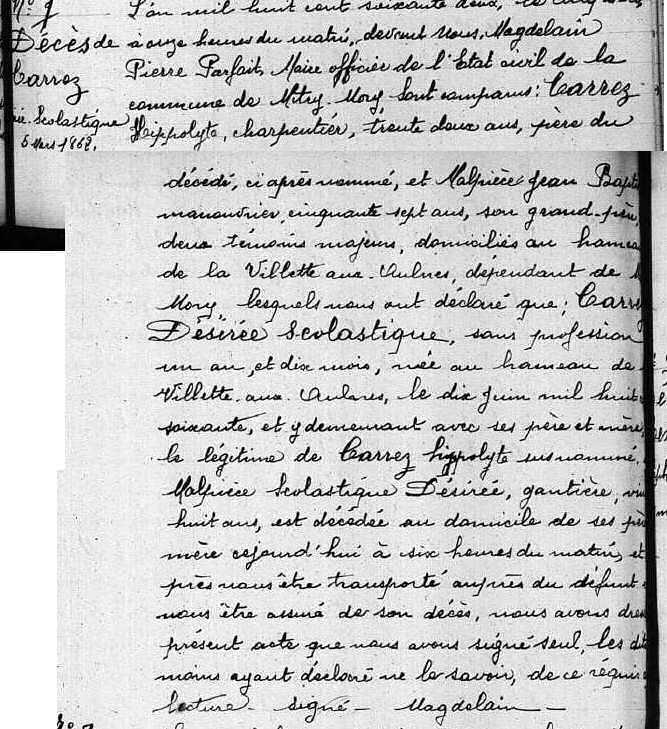 N° 7
L'an mil huit cent soixante deux, le cinq
Décès de
Carrez
Scolastique
5 Mars 1862.
à onze heures du matin, devant nous, Magdelain
Pierre Parfait, Maire officier de l'Etat civil de la
commune de Mitry-Mory sont comparus: Carrez
Hippolyte, charpentier, trente deux ans, père du
décédé, ci après nommé, et Malpièce Jean Bapti
manouvrier, cinquante sept ans, son grand-père,
deux témoins majeurs, domiciliés au hameau
de la Villette aux-Aulnes, dépendant de
Mory, lesquels nous ont déclaré que; Carre
Désirée Scolastique, sans profession
un an, et dix mois, née au hameau de
Villette-aux-Aulnes, le dix Juin mil huit
soixante, et y demeurant avec ses père et mère,
le légitime de Carrez hippolyte susnommé,
Malpièce Scolastique Désirée, gantière, vin
huit ans, est décédée au domicile de ses pèr
mère cejourd'hui à six heures du matin, et
près nous être transporté auprès du défunt
nous être assuré de son décès, nous avons dres
présent acte que nous avons signé seul, les dit
moins ayant déclaré ne le savoir, de ce requis
lecture - signé - Magdelain -